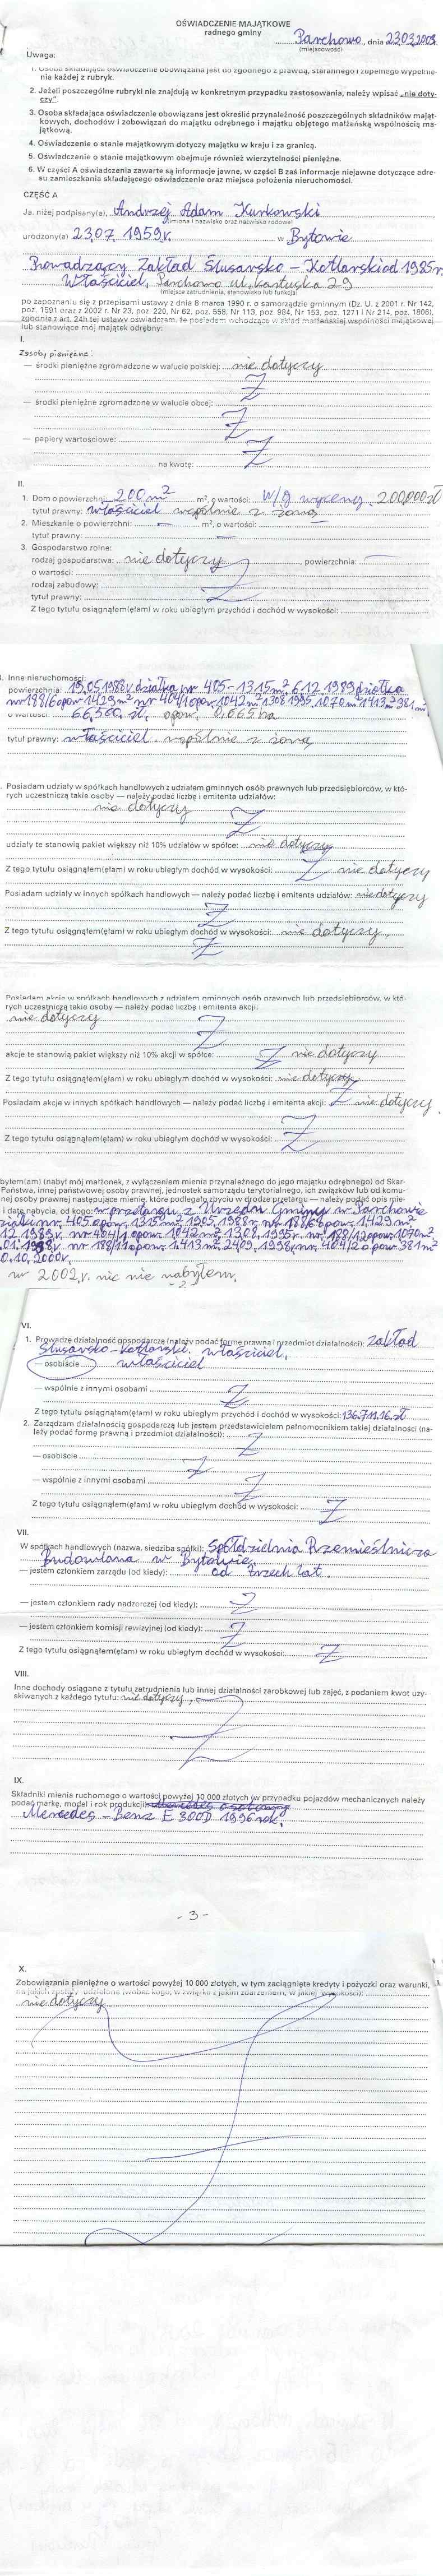 OŚWIADCZENIE MAJĄTKOWE
radnego gminy
Parchowo, dnia 23.03.2003
(miejscowość)
Uwaga:
1. Osoba składająca oświadczenie obowiązana jest do zgodnego z prawdą, starannego i zupełnego wypełnienia każdej z rubryk.
2. Jeżeli poszczególne rubryki nie znajdują w konkretnym przypadku zastosowania, należy wpisać „nie dotyczy".
3. Osoba składająca oświadczenie obowiązana jest określić przynależność poszczególnych składników majątkowych, dochodów i zobowiązań do majątku odrębnego i majątku objętego małżeńską wspólnością majątkową.
4. Oświadczenie o stanie majątkowym dotyczy majątku w kraju i za granicą.
5. Oświadczenie o stanie majątkowym obejmuje również wierzytelności pieniężne.
6. W części A oświadczenia zawarte są informacje jawne, w części B zaś informacje niejawne dotyczące adresu zamieszkania składającego oświadczenie oraz miejsca położenia nieruchomości.
CZĘŚĆ A
Ja, niżej podpisany(a), Andrzej Adam Kurkowski
(imiona i nazwisko oraz nazwisko rodowe)
urodzony(a) 23.07 1959r. w Bytowie
Prowadzący Zakład Ślusarsko - Kotlarski od 1985r
Właściciel, Parchowo ul, kartuska 29
(miejsce zatrudnienia, stanowisko lub funkcja)
po zapoznaniu się z przepisami ustawy z dnia 8 marca 1990 r. o samorządzie gminnym (Dz. U. z 2001 r. Nr 142,
poz. 1591 oraz z 2002 r. Nr 23, poz. 220, Nr 62, poz. 558, Nr 113, poz. 984, Nr 153, poz. 1271 i Nr 214, poz. 1806),
zgodnie z art. 24h tej ustawy oświadczam, że posiadam wchodzące w skład małżeńskiej wspólności majątkowej
lub stanowiące mój majątek odrębny:
I.
Zasoby pieniężne:
— środki pieniężne zgromadzone w walucie polskiej: nie dotyczy
Z
— środki pieniężne zgromadzone w walucie obcej:
Z
— papiery wartościowe: Z
na kwotę:
II.
1. Dom o powierzchni: 200 m² m², o wartości: W/g wyceny. 200,000 zł
tytuł prawny: właściciel wspólnie z żoną
2. Mieszkanie o powierzchni: — m², o wartości: —
tytuł prawny: —
3. Gospodarstwo rolne:
rodzaj gospodarstwa: nie dotyczy, powierzchnia: —
o wartości:
rodzaj zabudowy: Z
tytuł prawny:
Z tego tytułu osiągnąłem(ęłam) w roku ubiegłym przychód i dochód w wysokości:
Inne nieruchomości:
powierzchnia: 19.05.1988r działka nr 405-1315m² 6.12 1989 działka
nr 188/6 opow 1429m² nr 404/1 opow 1042m² 1308 1995, 1070m² 1413m² 381m²
o wartości: 66,560. zł, opow. 0,665 ha
tytuł prawny: właściciel wspólnie z żoną
Posiadam udziały w spółkach handlowych z udziałem gminnych osób prawnych lub przedsiębiorców, w których uczestniczą takie osoby — należy podać liczbę i emitenta udziałów:
nie dotyczy
Z
udziały te stanowią pakiet większy niż 10% udziałów w spółce: nie dotyczy
Z tego tytułu osiągnąłem(ęłam) w roku ubiegłym dochód w wysokości: Z nie dotyczy
Posiadam udziały w innych spółkach handlowych — należy podać liczbę i emitenta udziałów: nie dotyczy
Z
Z tego tytułu osiągnąłem(ęłam) w roku ubiegłym dochód w wysokości: nie dotyczy,
Z
Posiadam akcje w spółkach handlowych z udziałem gminnych osób prawnych lub przedsiębiorców, w których uczestniczą takie osoby — należy podać liczbę i emitenta akcji:
nie dotyczy
Z
akcje te stanowią pakiet większy niż 10% akcji w spółce: Z nie dotyczy
Z tego tytułu osiągnąłem(ęłam) w roku ubiegłym dochód w wysokości: nie dotyczy
Posiadam akcje w innych spółkach handlowych — należy podać liczbę i emitenta akcji: Z nie dotyczy.
Z
Z tego tytułu osiągnąłem(ęłam) w roku ubiegłym dochód w wysokości:
byłem(am) (nabył mój małżonek, z wyłączeniem mienia przynależnego do jego majątku odrębnego) od Skar-
Państwa, innej państwowej osoby prawnej, jednostek samorządu terytorialnego, ich związków lub od komu-
nej osoby prawnej następujące mienie, które podlegało zbyciu w drodze przetargu — należy podać opis mie-
i datę nabycia, od kogo: w przetargu z Urzędu Gminy w Parchowie
nr. 405 opow. 1315m² 1905, 1988r. nr. 188/6 opow. 1429m²
12 1989r. nr 404/1 opow. 1042m² 1308, 1995r. nr. 188/12 opow. 1070m²
nr 188/11 opow. 1413m², 2409, 1998r. nr, 404/2 opow. 381m²
0.10, 2000r.
w 2002,r. nic nie nabyłem,
VI.
1. Prowadzę działalność gospodarczą (należy podać formę prawną i przedmiot działalności): Zakład
Ślusarsko-Kotlarski. właściciel,
— osobiście właściciel
— wspólnie z innymi osobami Z
Z tego tytułu osiągnąłem(ęłam) w roku ubiegłym przychód i dochód w wysokości: 136.711.16.zł
2. Zarządzam działalnością gospodarczą lub jestem przedstawicielem pełnomocnikiem takiej działalności (należy podać formę prawną i przedmiot działalności): Z
— osobiście Z
— wspólnie z innymi osobami Z
Z tego tytułu osiągnąłem(ęłam) w roku ubiegłym dochód w wysokości: Z
VII.
W spółkach handlowych (nazwa, siedziba spółki): Spółdzielnia Rzemieślnicza
Budowlana w Bytowie.
— jestem członkiem zarządu (od kiedy): od trzech lat.
— jestem członkiem rady nadzorczej (od kiedy): Z
— jestem członkiem komisji rewizyjnej (od kiedy): Z
Z tego tytułu osiągnąłem(ęłam) w roku ubiegłym dochód w wysokości: Z
VIII.
Inne dochody osiągane z tytułu zatrudnienia lub innej działalności zarobkowej lub zajęć, z podaniem kwot uzyskiwanych z każdego tytułu: nie dotyczy,
Z
IX.
Składniki mienia ruchomego o wartości powyżej 10 000 złotych (w przypadku pojazdów mechanicznych należy
podać markę, model i rok produkcji):
Mercedes - Benz E 300D 1996 rok.
- 3 -
X.
Zobowiązania pieniężne o wartości powyżej 10 000 złotych, w tym zaciągnięte kredyty i pożyczki oraz warunki,
na jakich zostały udzielone (wobec kogo, w związku z jakim zdarzeniem, w jakiej wysokości):
nie dotyczy